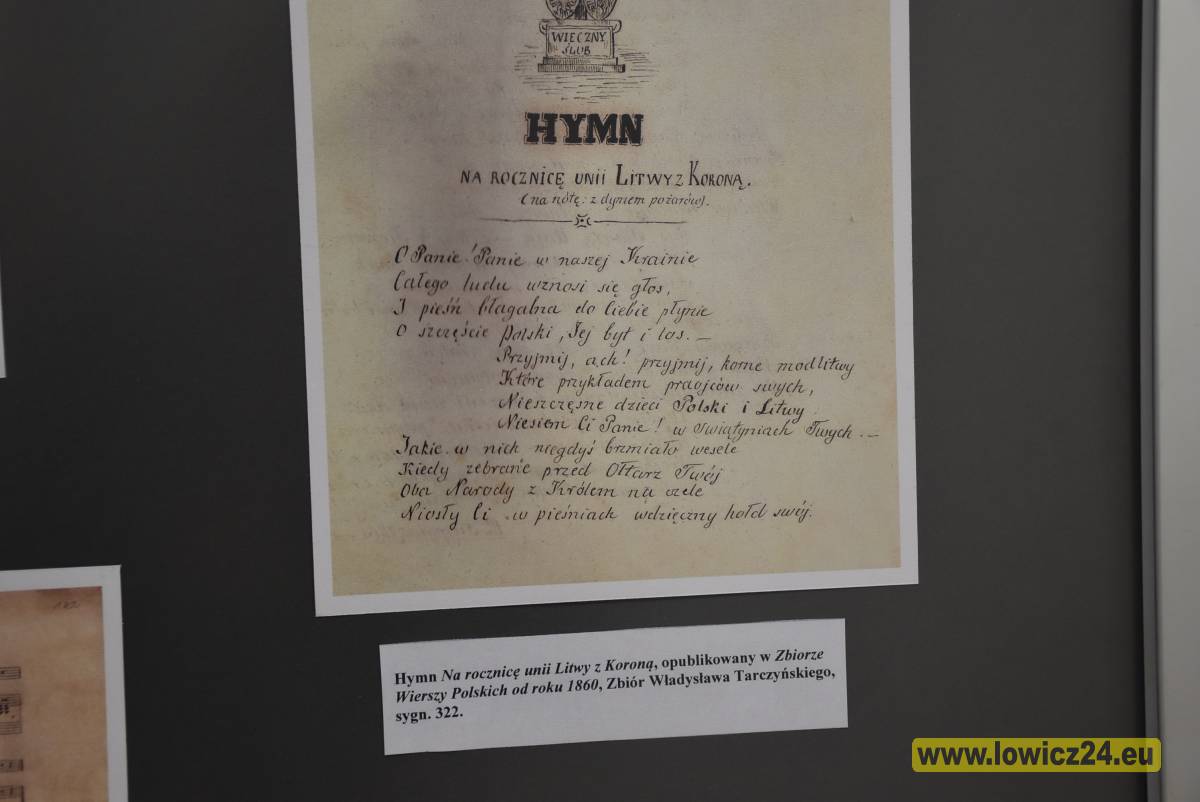 WIECZNY
ŚLUB
HYMN
NA ROCZNICĘ UNII LITWY Z KORONĄ.
(na nótę: z dymem pożarów).
O Panie! Panie w naszej Krainie
Całego ludu wznosi się głos,
I pieśń błagalna do Ciebie płynie
O szczęście Polski, Jej byt i los. —
Przyjmij, ach! przyjmij, korne modlitwy
Które przykładem praojców swych,
Nieszczęsne dzieci Polski i Litwy
Niesiem Ci Panie! w swiątyniach Twych. —
Jakie w nich niegdyś brzmiało wesele
Kiedy zebrane przed Ołtarz Twój
Oba Narody z Królem na czele
Niosły Ci w pieśniach wdzięczny hołd swój.
122
Hymn Na rocznicę unii Litwy z Koroną, opublikowany w Zbiorze
Wierszy Polskich od roku 1860, Zbiór Władysława Tarczyńskiego,
sygn. 322.
www.lowicz24.eu